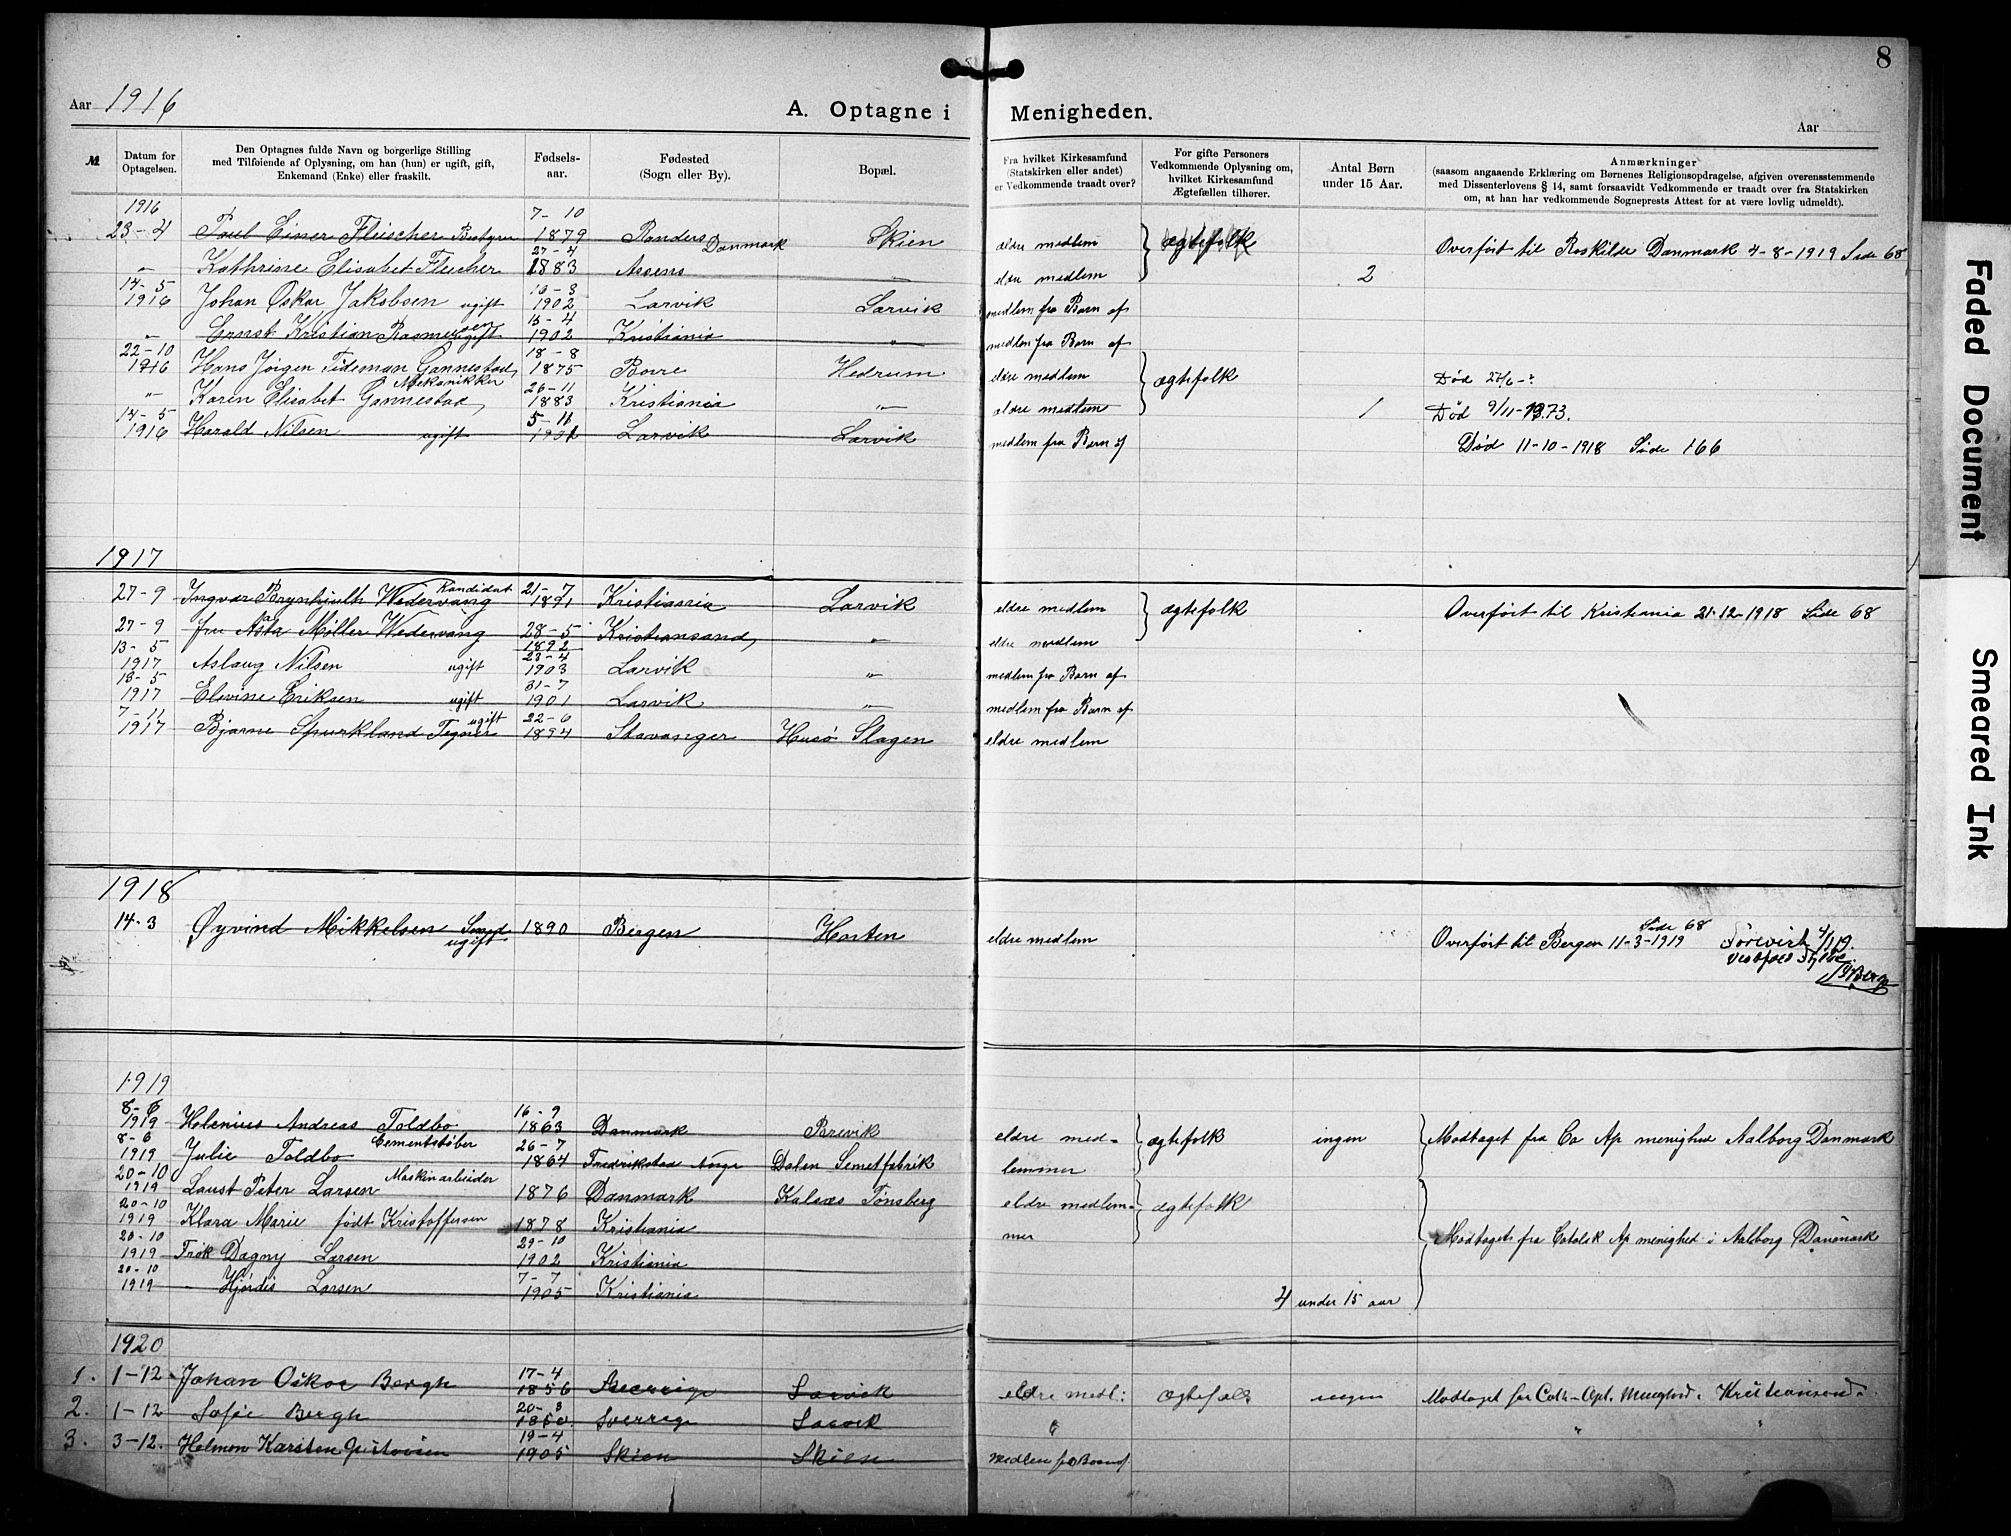 8
Aar 1916
A. Optagne i Menigheden.
Aar
№
Datum for Optagelsen.
Den Optagnes fulde Navn og borgerlige Stilling
med Tilføiende af Oplysning, om han (hun) er ugift, gift,
Enkemand (Enke) eller fraskilt.
Fødsels-
aar.
Fødested
(Sogn eller By).
Bopæl.
Fra hvilket Kirkesamfund
(Statskirken eller andet)
er Vedkommende traadt over?
For gifte Personers
Vedkommende Oplysning om,
hvilket Kirkesamfund
Ægtefællen tilhører.
Antal Børn
under 15 Aar.
Anmærkninger
(saasom angaaende Erklæring om Børnenes Religionsopdragelse, afgiven overensstemmende
med Dissenterlovens § 14, samt forsaavidt Vedkommende er traadt over fra Statskirken
om, at han har vedkommende Sogneprests Attest for at være lovlig udmeldt).
1916
23-4 Poul Einer Fleischer Bestyrer 7-10 1879 Randers Danmark Skien ældre medlem ægtefolk Overført til Roskilde Danmark 4-8-1919 Side 68
" Kathrine Elisabet Fleischer 27-4 1883 Assens " ældre medlem 2
14-5 1916 Johan Oskar Jakobsen ugift 1902 Larvik Larvik medlem fra Barn af
" Ernst Kristian Rasmussen ugift 15-4 1902 Kristiania " medlem fra Barn af
22-10 1916 Hans Jørgen Tideman Gannestad Mekanikker 18-8 1875 Borre Hedrum eldre medlem ægtefolk Død 27/6-?
" Karen Elisabet Gannestad 26-11 1883 Kristiania " ældre medlem 1 Død 9/11-1973.
14-5 1916 Harald Nilsen ugift 5-11 1901 Larvik Larvik medlem fra Barn af Død 11-10-1918 Side 166
1917
27-9 Ingvar Brynhjulh Wedervang Kandidat 21-7 1891 Kristiania Larvik eldre medlem ægtefolk Overført til Kristiania 21-12-1918 Side 68
27-9 fru Asta Møller Wedervang 28-5 1892 Kristiansand " eldre medlem
13-5 1917 Aslaug Nilsen ugift 23-4 1903 Larvik " medlem fra Barn af
13-5 1917 Elvine Eriksen ugift 31-7 1901 Larvik " medlem fra Barn af
7-11 1917 Bjarne Spurkland Tegner ugift 22-6 1894 Stavanger Husø Slagen eldre medlem
1918
14-3 Øyvind Mikkelsen Smed ugift 1890 Bergen Horten eldre medlem Overført til Bergen 11-3-1919 Side 68
1919
8-6 1919 Helenius Andreas Toldbo Cementstøber 16-9 1863 Danmark Brevik eldre med- ægtefolk ingen Modtaget fra Ca Ap menighed Aalborg Danmark
8-6 1919 Julie Toldbo 26-7 1864 Fredrikstad Norge Dalen Semetfabrik lemmer
20-10 1919 Laust Peter Larsen Maskinarbeider 1876 Danmark Kalnæs Tønsberg eldre medlem- ægtefolk
20-10 1919 Klara Marie født Kristoffersen 1878 Kristiania mer Modtaget fra Catolsk Ap menighed i Aalborg Danmark
20-10 1919 Frøk Dagny Larsen 29-10 1902 Kristiania
20-10 1919 " Hjørdis Larsen 7-7 1905 Kristiania 4 under 15 aar
1920
1. 1-12 Johan Oskar Bergh 17-4 1856 Sverrige Larvik eldre medl: ægtefæls ingen Modtaget fra Cath-Apt. Kristiansand
2. 1-12 Sofie Bergh 20-8 Sverrige Larvik "
3. 3-12. Karsten 19-4 1905 Skien Skien medlem fra Barnaf
Faded Document
Smeared Ink